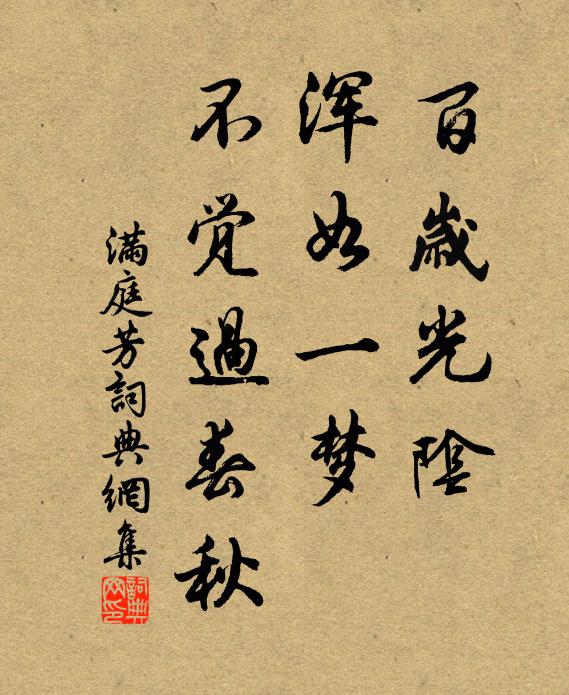 百歲光陰
渾如一梦
不覺過春秋
滿庭芳詞典網集
詞典网印